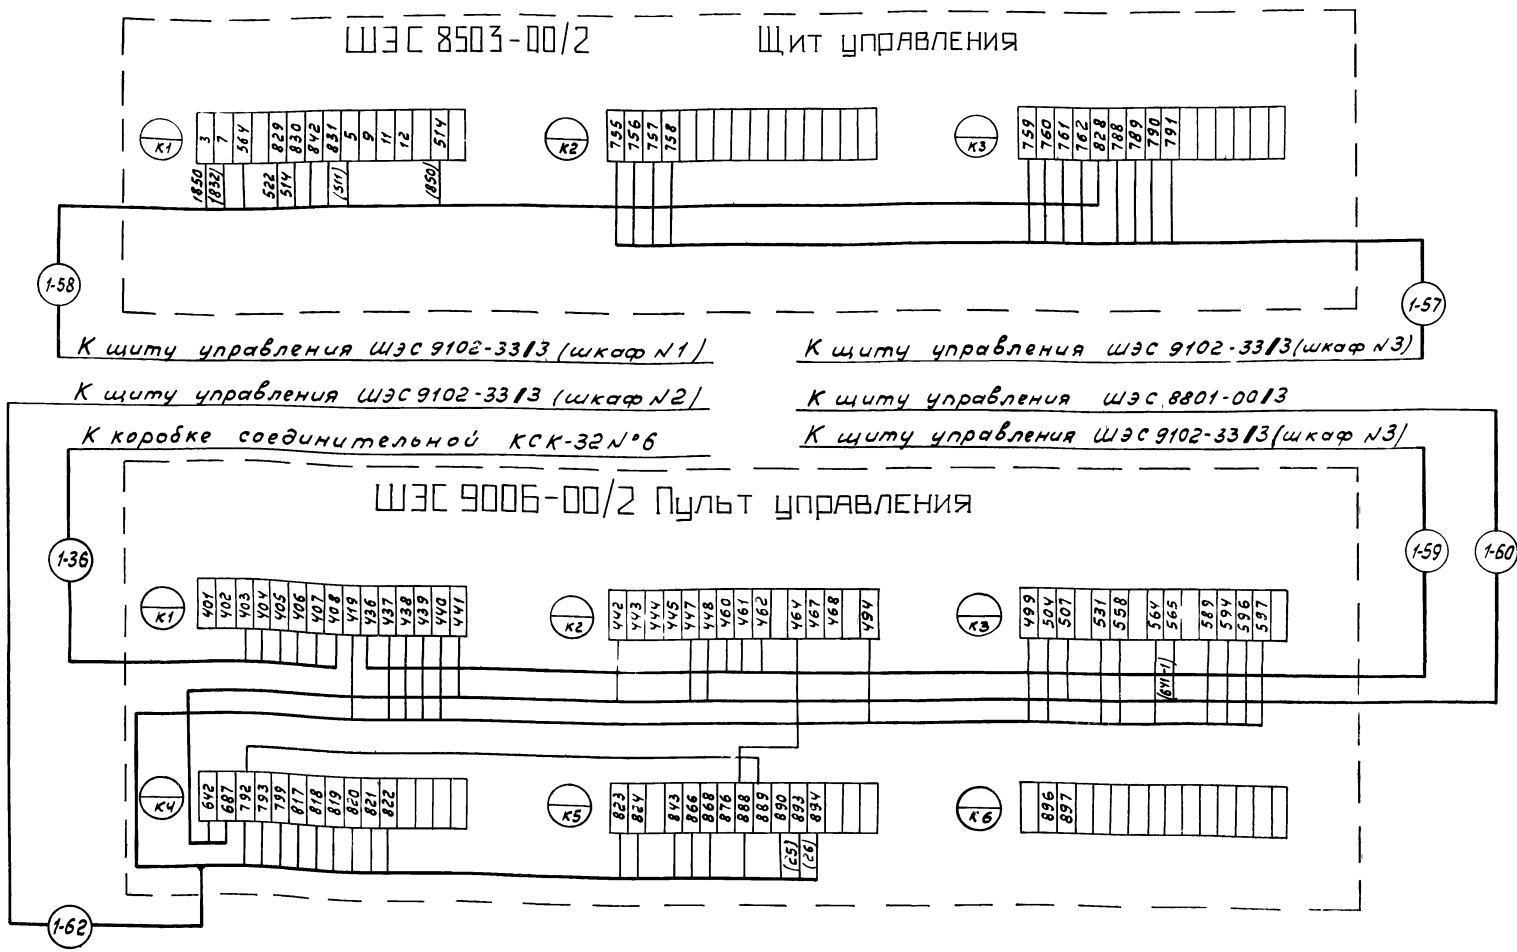 ШЭС 8503-00/2 Щит управления
К1 3 7 564 829 830 842 831 5 9 11 12 514
К2 755 756 757 758
К3 759 760 761 762 828 788 789 790 791
1850 (832) 522 514 (511) (850)
1-58
1-57
К щиту управления ШЭС 9102-33/3 (шкаф №1)
К щиту управления ШЭС 9102-33/3 (шкаф №3)
К щиту управления ШЭС 9102-33/3 (шкаф №2)
К щиту управления ШЭС 8801-00/3
К коробке соединительной КСК-32 №6
К щиту управления ШЭС 9102-33/3 (шкаф №3)
ШЭС 9006-00/2 Пульт управления
1-36
1-59
1-60
К1 401 402 403 404 405 406 407 408 419 436 437 438 439 440 441
К2 442 443 444 445 447 448 460 461 462 464 467 468 494
К3 499 504 507 531 558 564 565 589 594 596 597
(641-1)
К4 642 687 792 793 799 817 818 819 820 821 822
К5 823 824 843 866 868 876 888 889 890 893 894
К6 896 897
(25) (26)
1-62